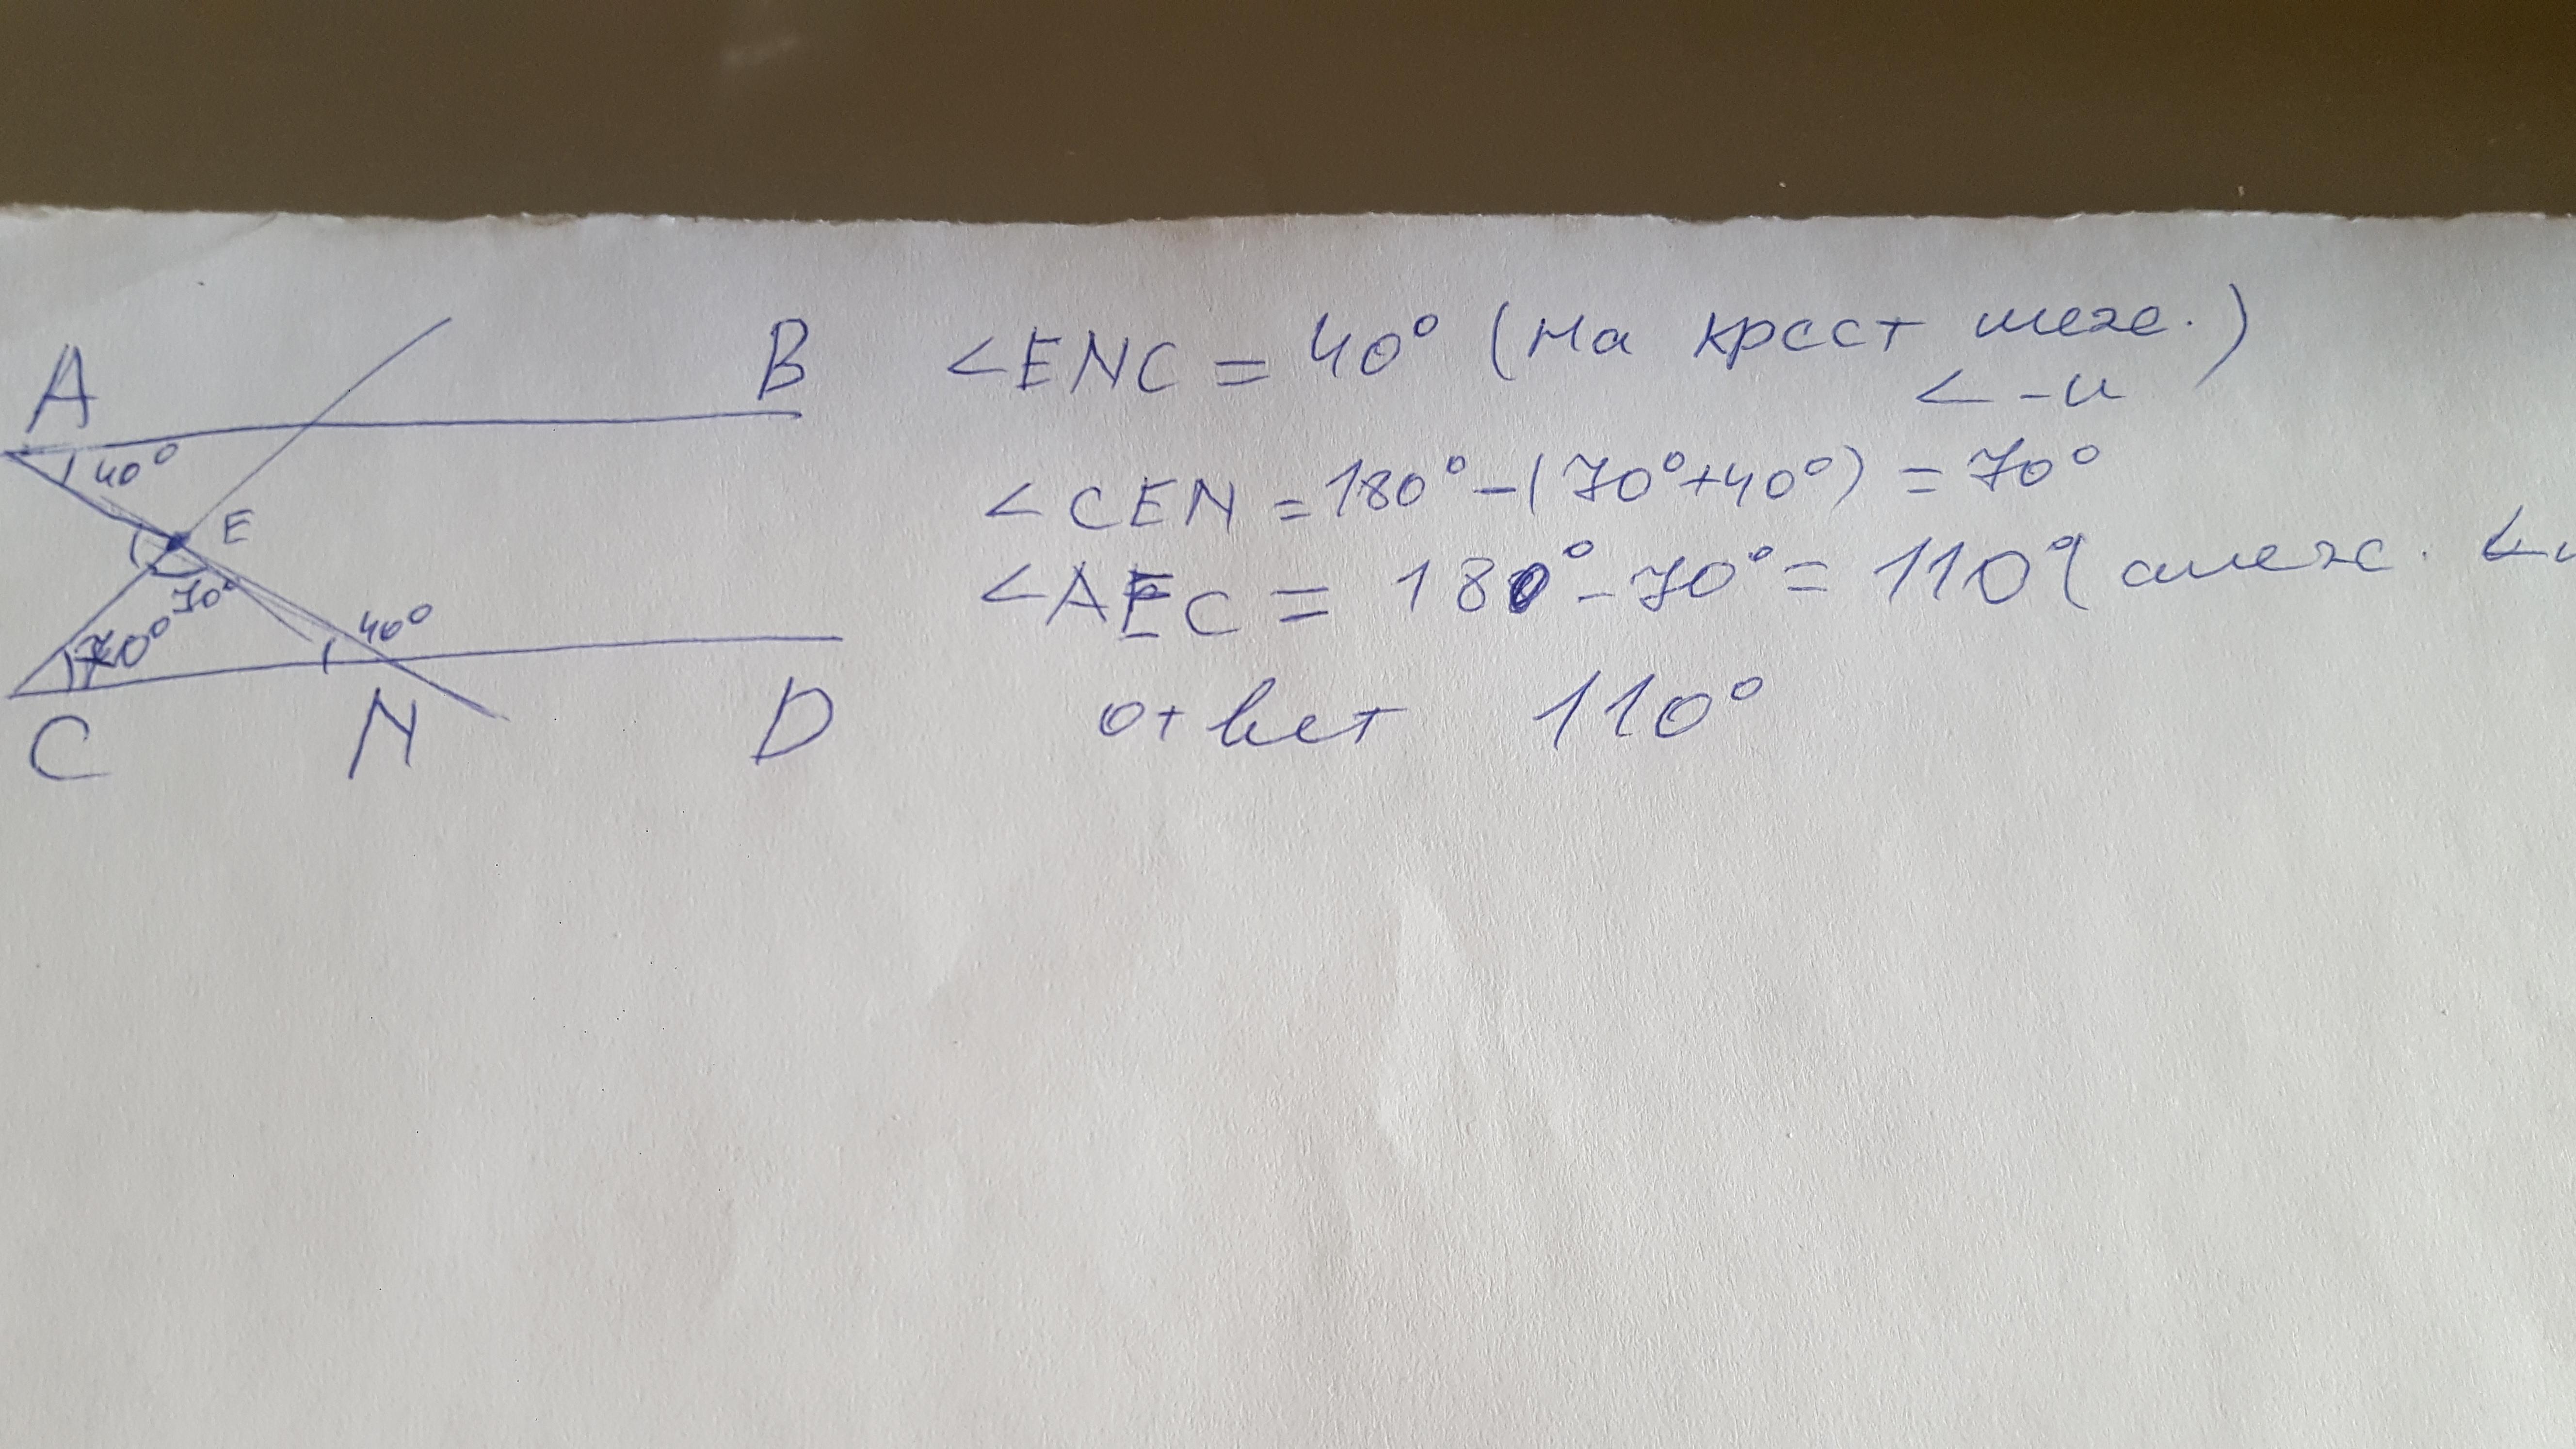 A
B
40°
E
70°
70°
40°
C
N
D
<ENC = 40° (на крест меже.)
< -и
<CEN = 180° -(70°+40°) = 70°
<AEC = 180° - 70° = 110° (смеж. <и
ответ 110°